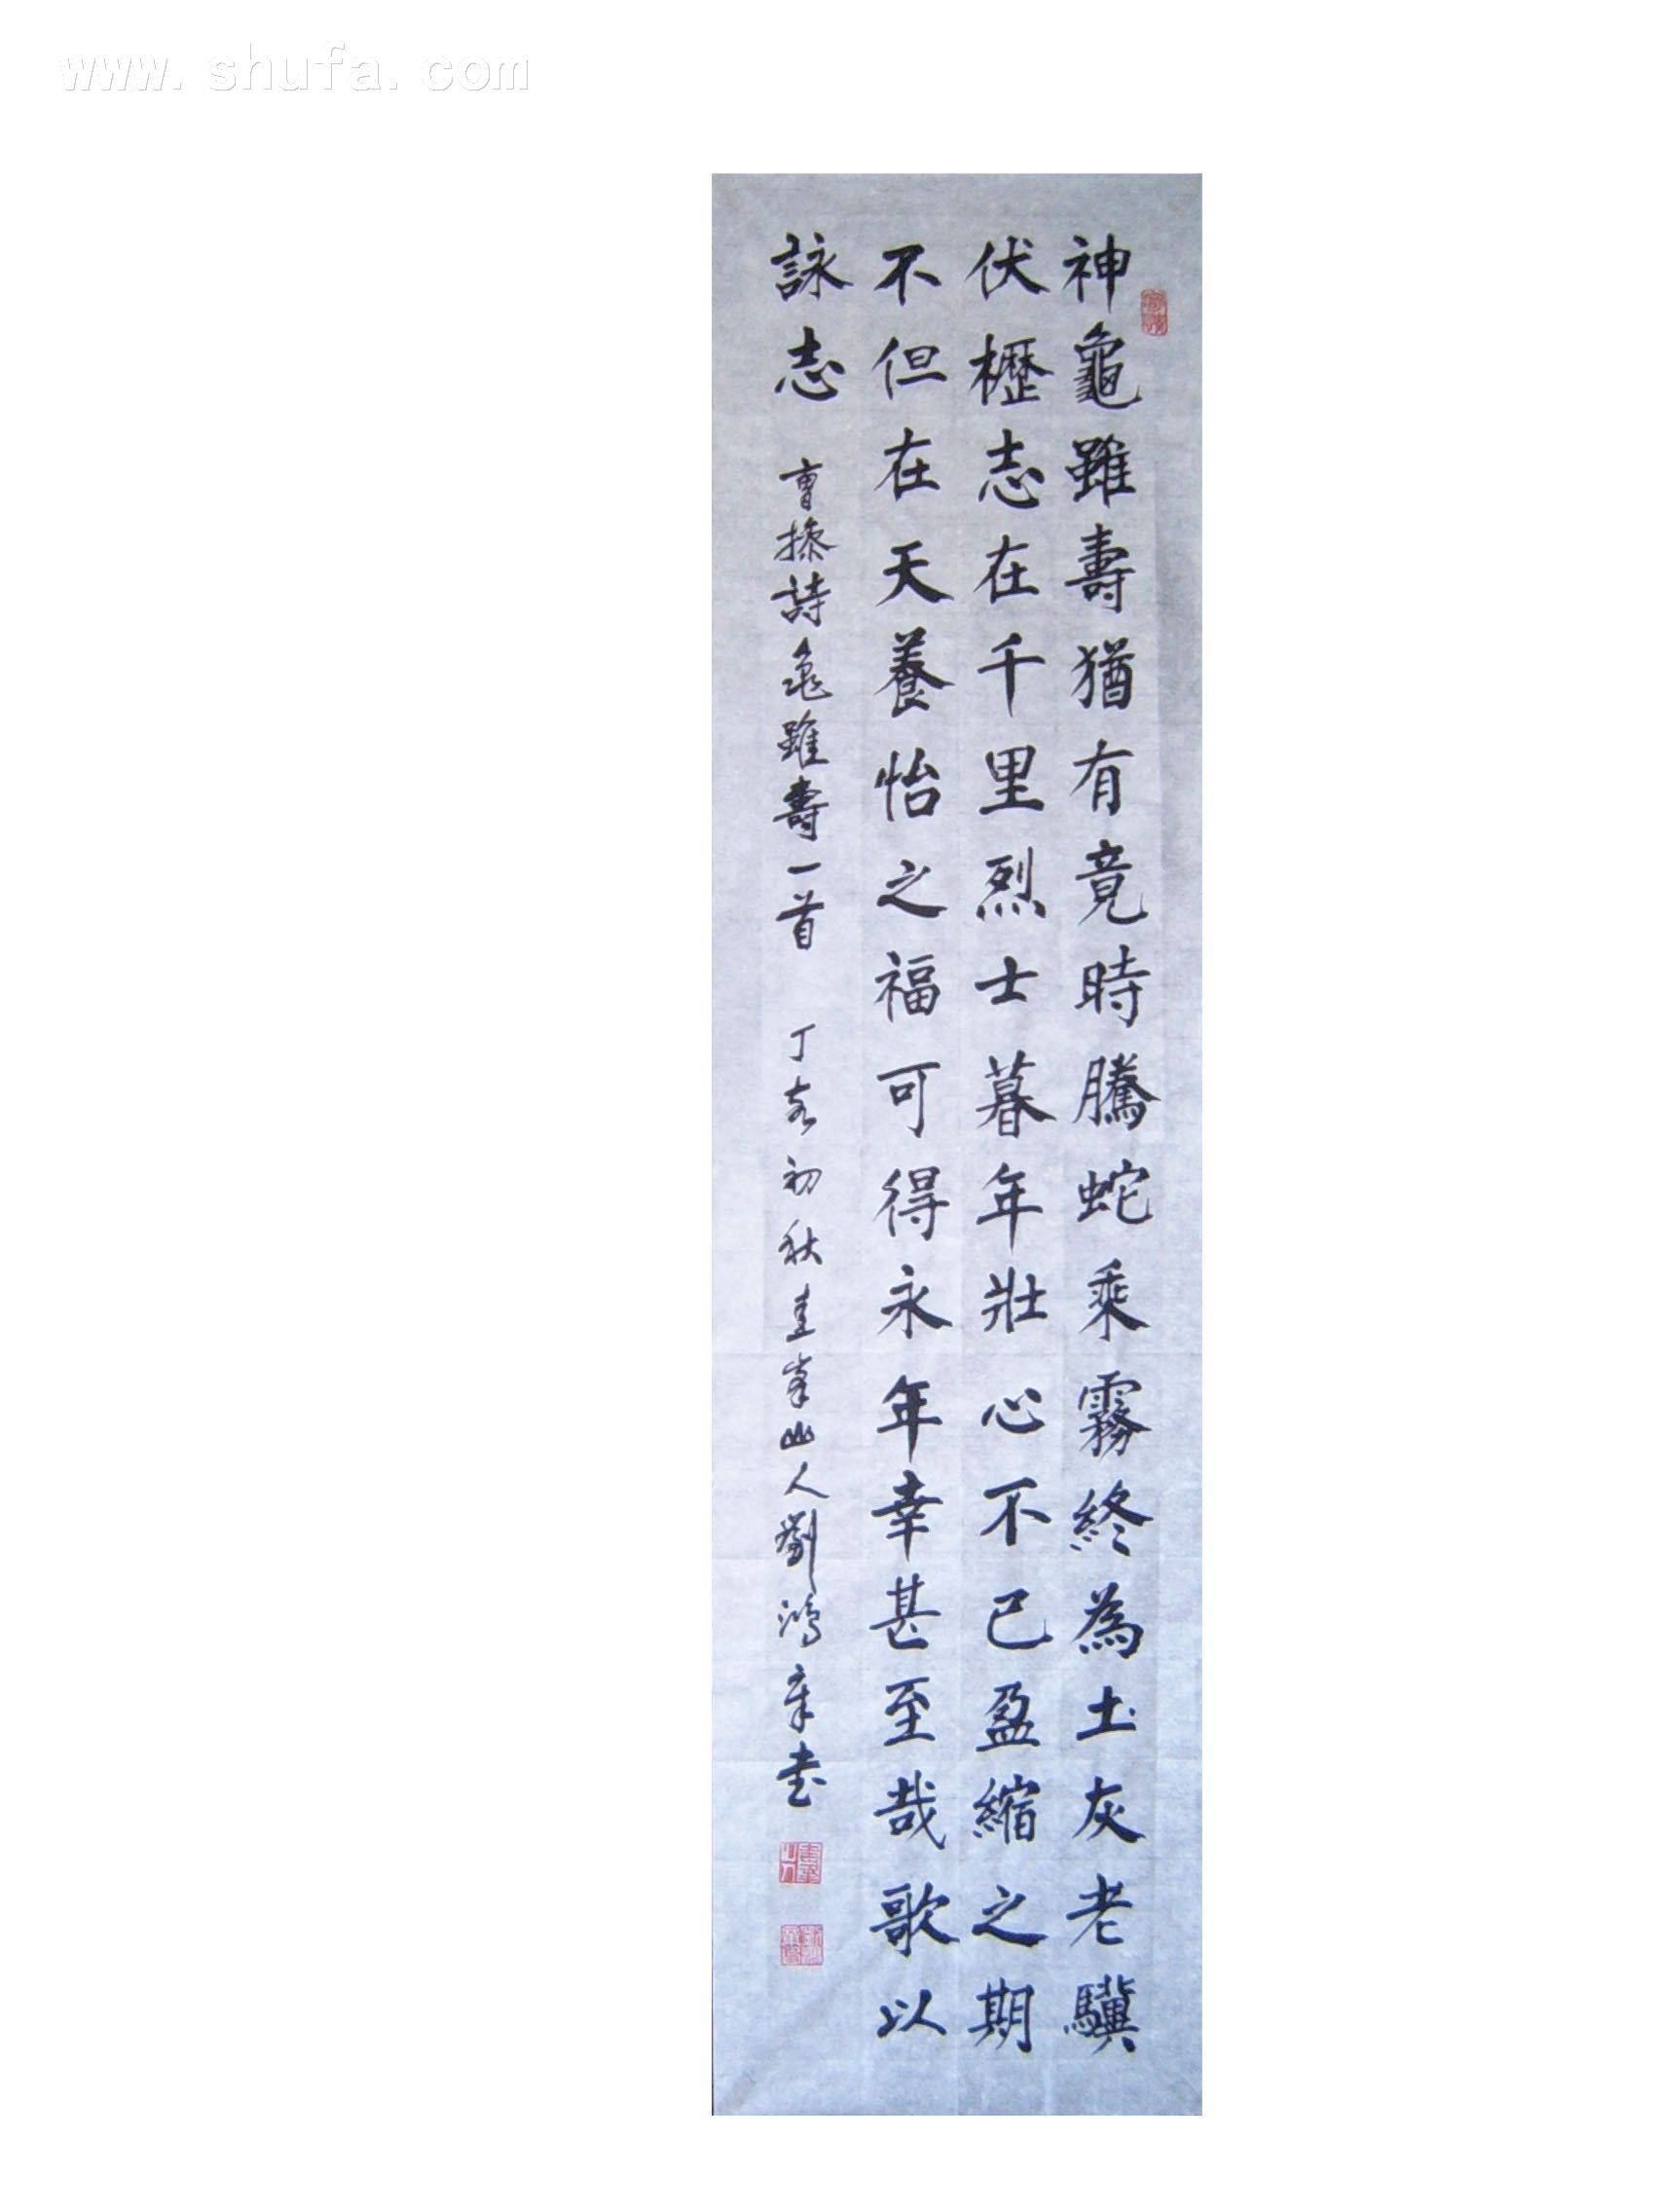 www.shufa.com
神龜雖壽猶有竟時騰蛇乘霧終為土灰老驥
伏櫪志在千里烈士暮年壯心不已盈縮之期
不但在天養怡之福可得永年幸甚至哉歌以
詠志 曹操詩龜雖壽一首 丁亥初秋圭峯山人劉鴻章書